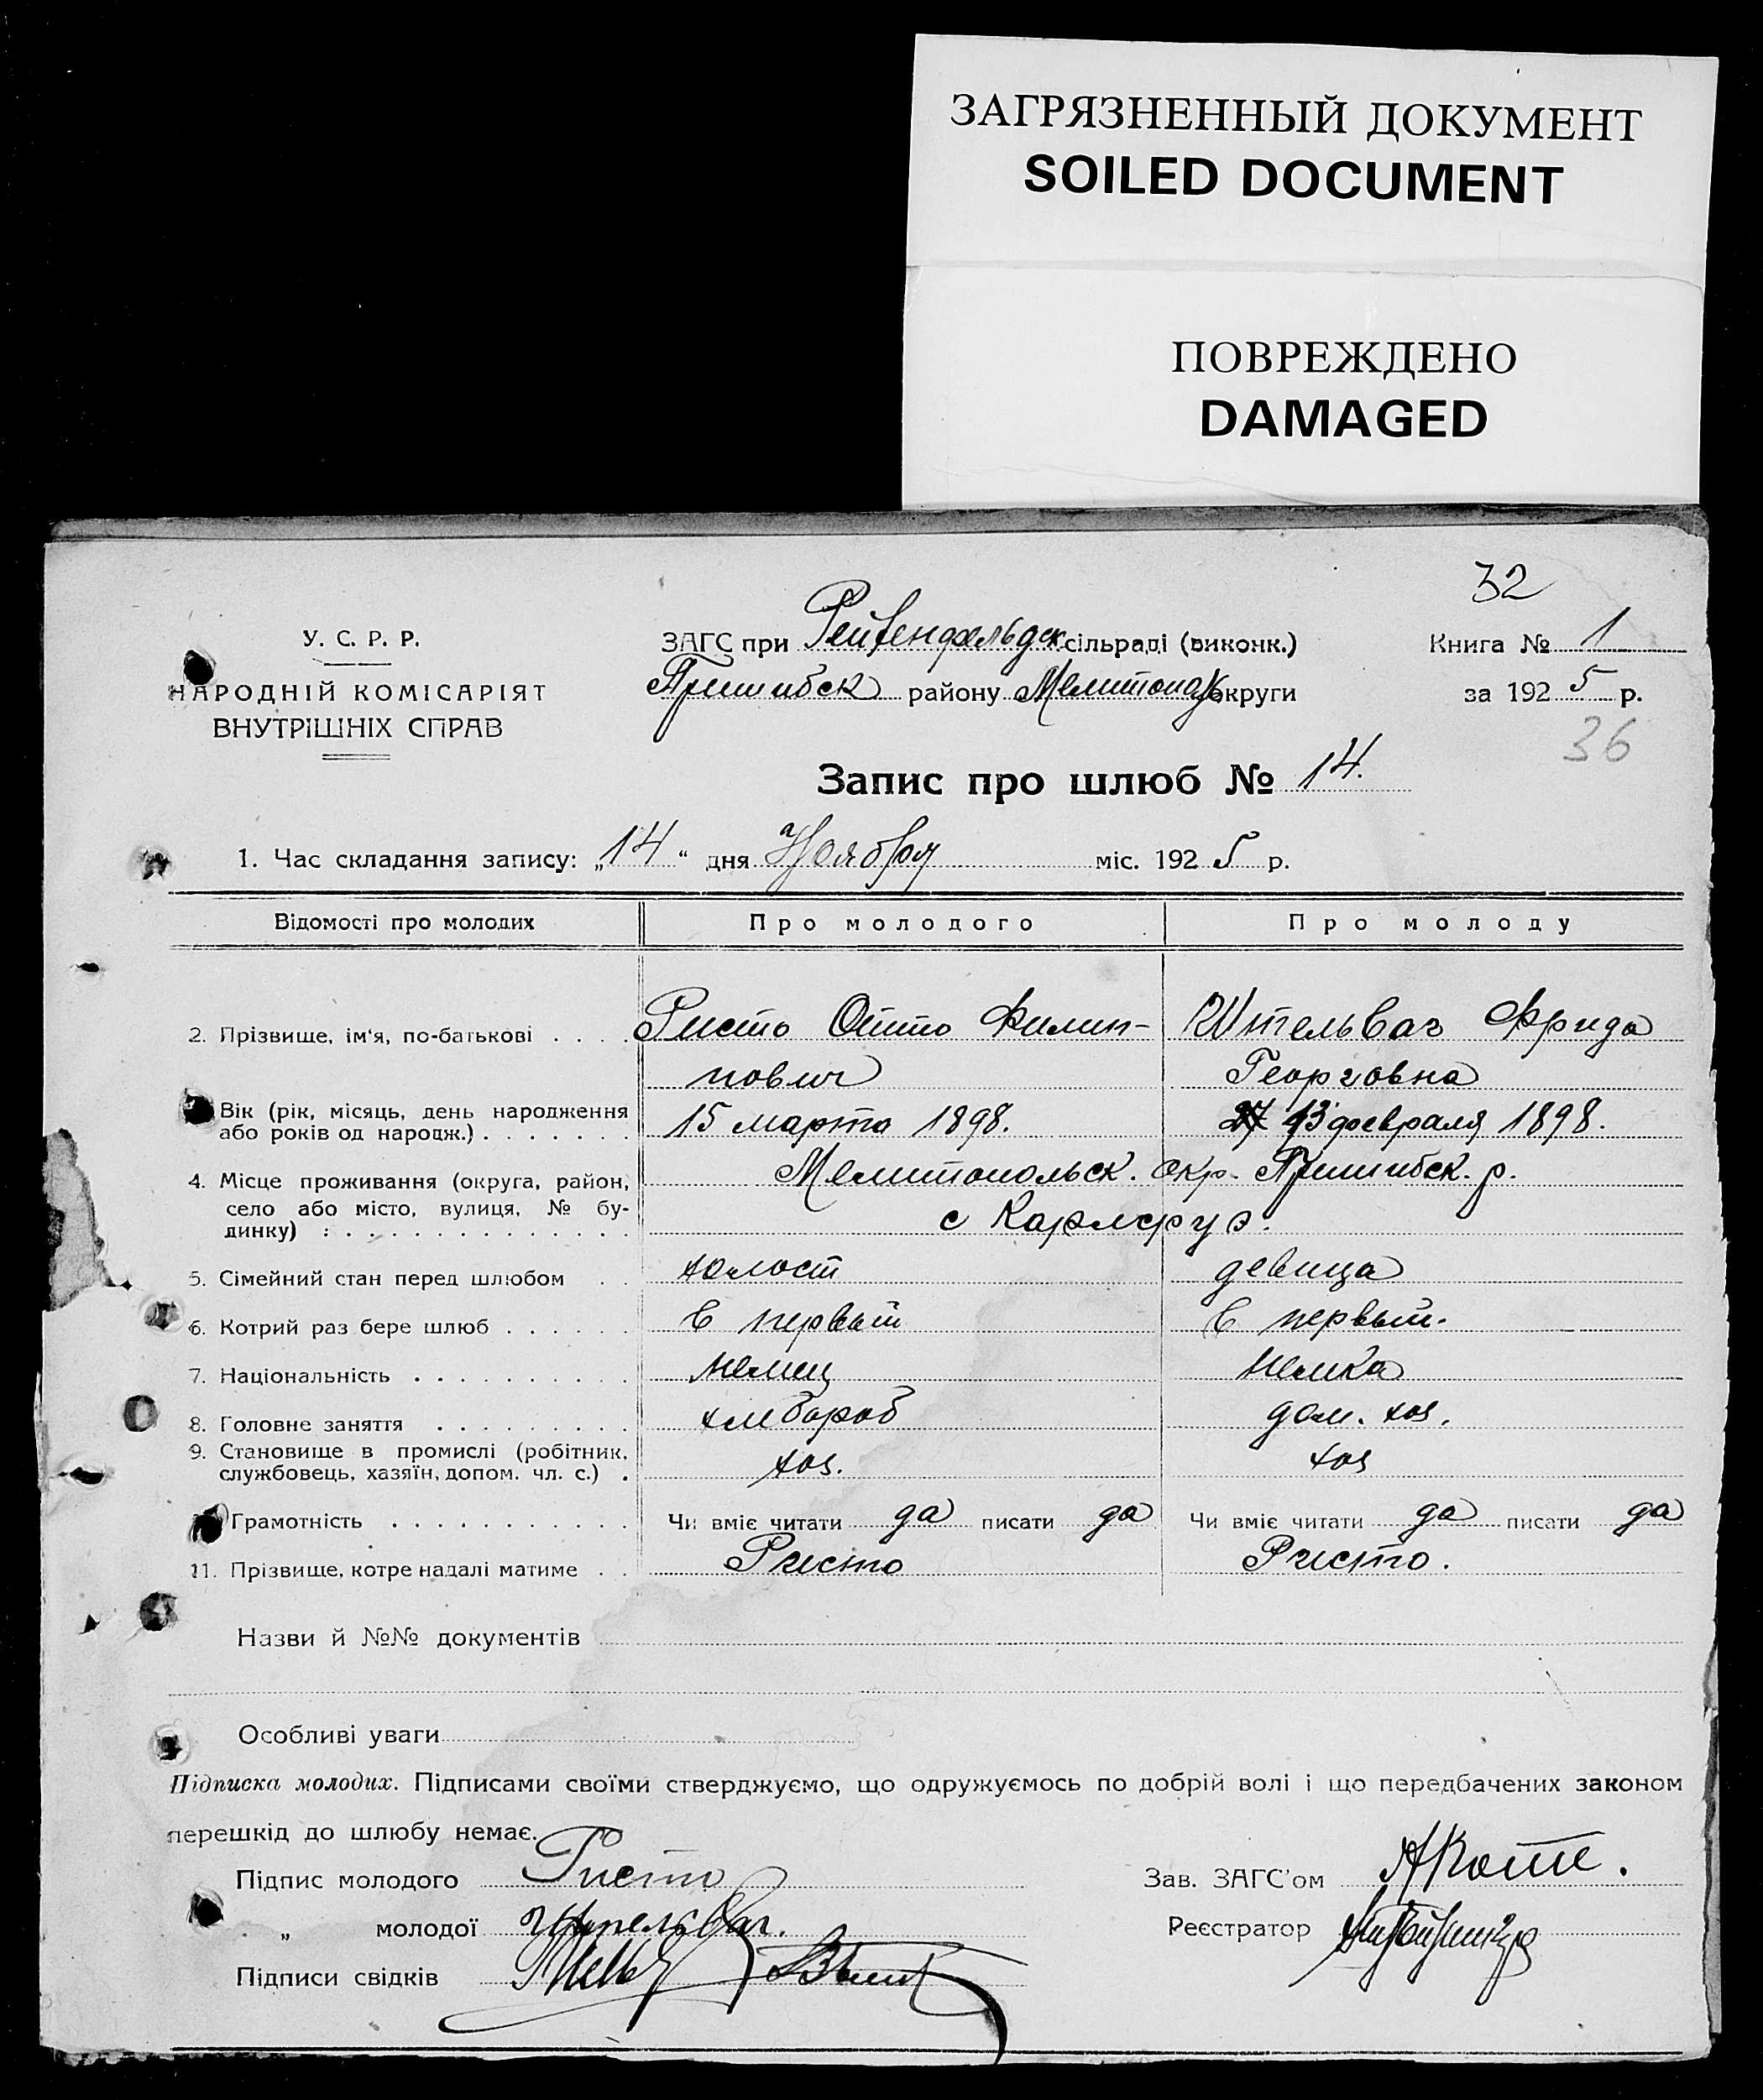 ЗАГРЯЗНЕННЫЙ ДОКУМЕНТ
SOILED DOCUMENT
ПОВРЕЖДЕНО
DAMAGED
32
У. С. Р. Р.
НАРОДНІЙ КОМІСАРІЯТ
ВНУТРІШНІХ СПРАВ
ЗАГС при Рейхенфельдск сільраді (виконк.)
Пришибск району Мелитопол округи
Книга № 1
за 192 5 р.
36
Запис про шлюб № 14.
1. Час складання запису: „ 14 “ дня Ноября міс. 192 5 р.
Відомості про молодих Про молодого Про молоду
2. Прізвище, ім'я, по-батькові . . . . Ристо Отто Филип- Фрида
пович Георговна
Вік (рік, місяць, день народження
або років од народж.) . . . . . . . 15 марта 1898. 13 февраля 1898.
4. Місце проживання (округа, район, Мелитопольск. окр. Пришибск. р.
село або місто, вулиця, № бу-
динку) : . . . . . . . . . . . . . . с Карлсруэ.
5. Сімейний стан перед шлюбом . . холост девица
6. Котрий раз бере шлюб . . . . . . в первый в первый.
7. Національність . . . . . . . . . . немец немка
8. Головне заняття . . . . . . . . . хлебороб дом. хоз.
9. Становище в промислі (робітник,
службовець, хазяїн, допом. чл. с.) . хоз. хоз
Грамотність . . . . . . . . . . . Чи вміє читати да писати да Чи вміє читати да писати да
11. Прізвище, котре надалі матиме . . Ристо Ристо.
Назви й №№ документів
Особливі уваги
Підписка молодих. Підписами своїми стверджуємо, що одружуємось по добрій волі і що передбачених законом
перешкід до шлюбу немає.
Підпис молодого Ристо
Зав. ЗАГС'ом
„ молодої
Реєстратор
Підписи свідків